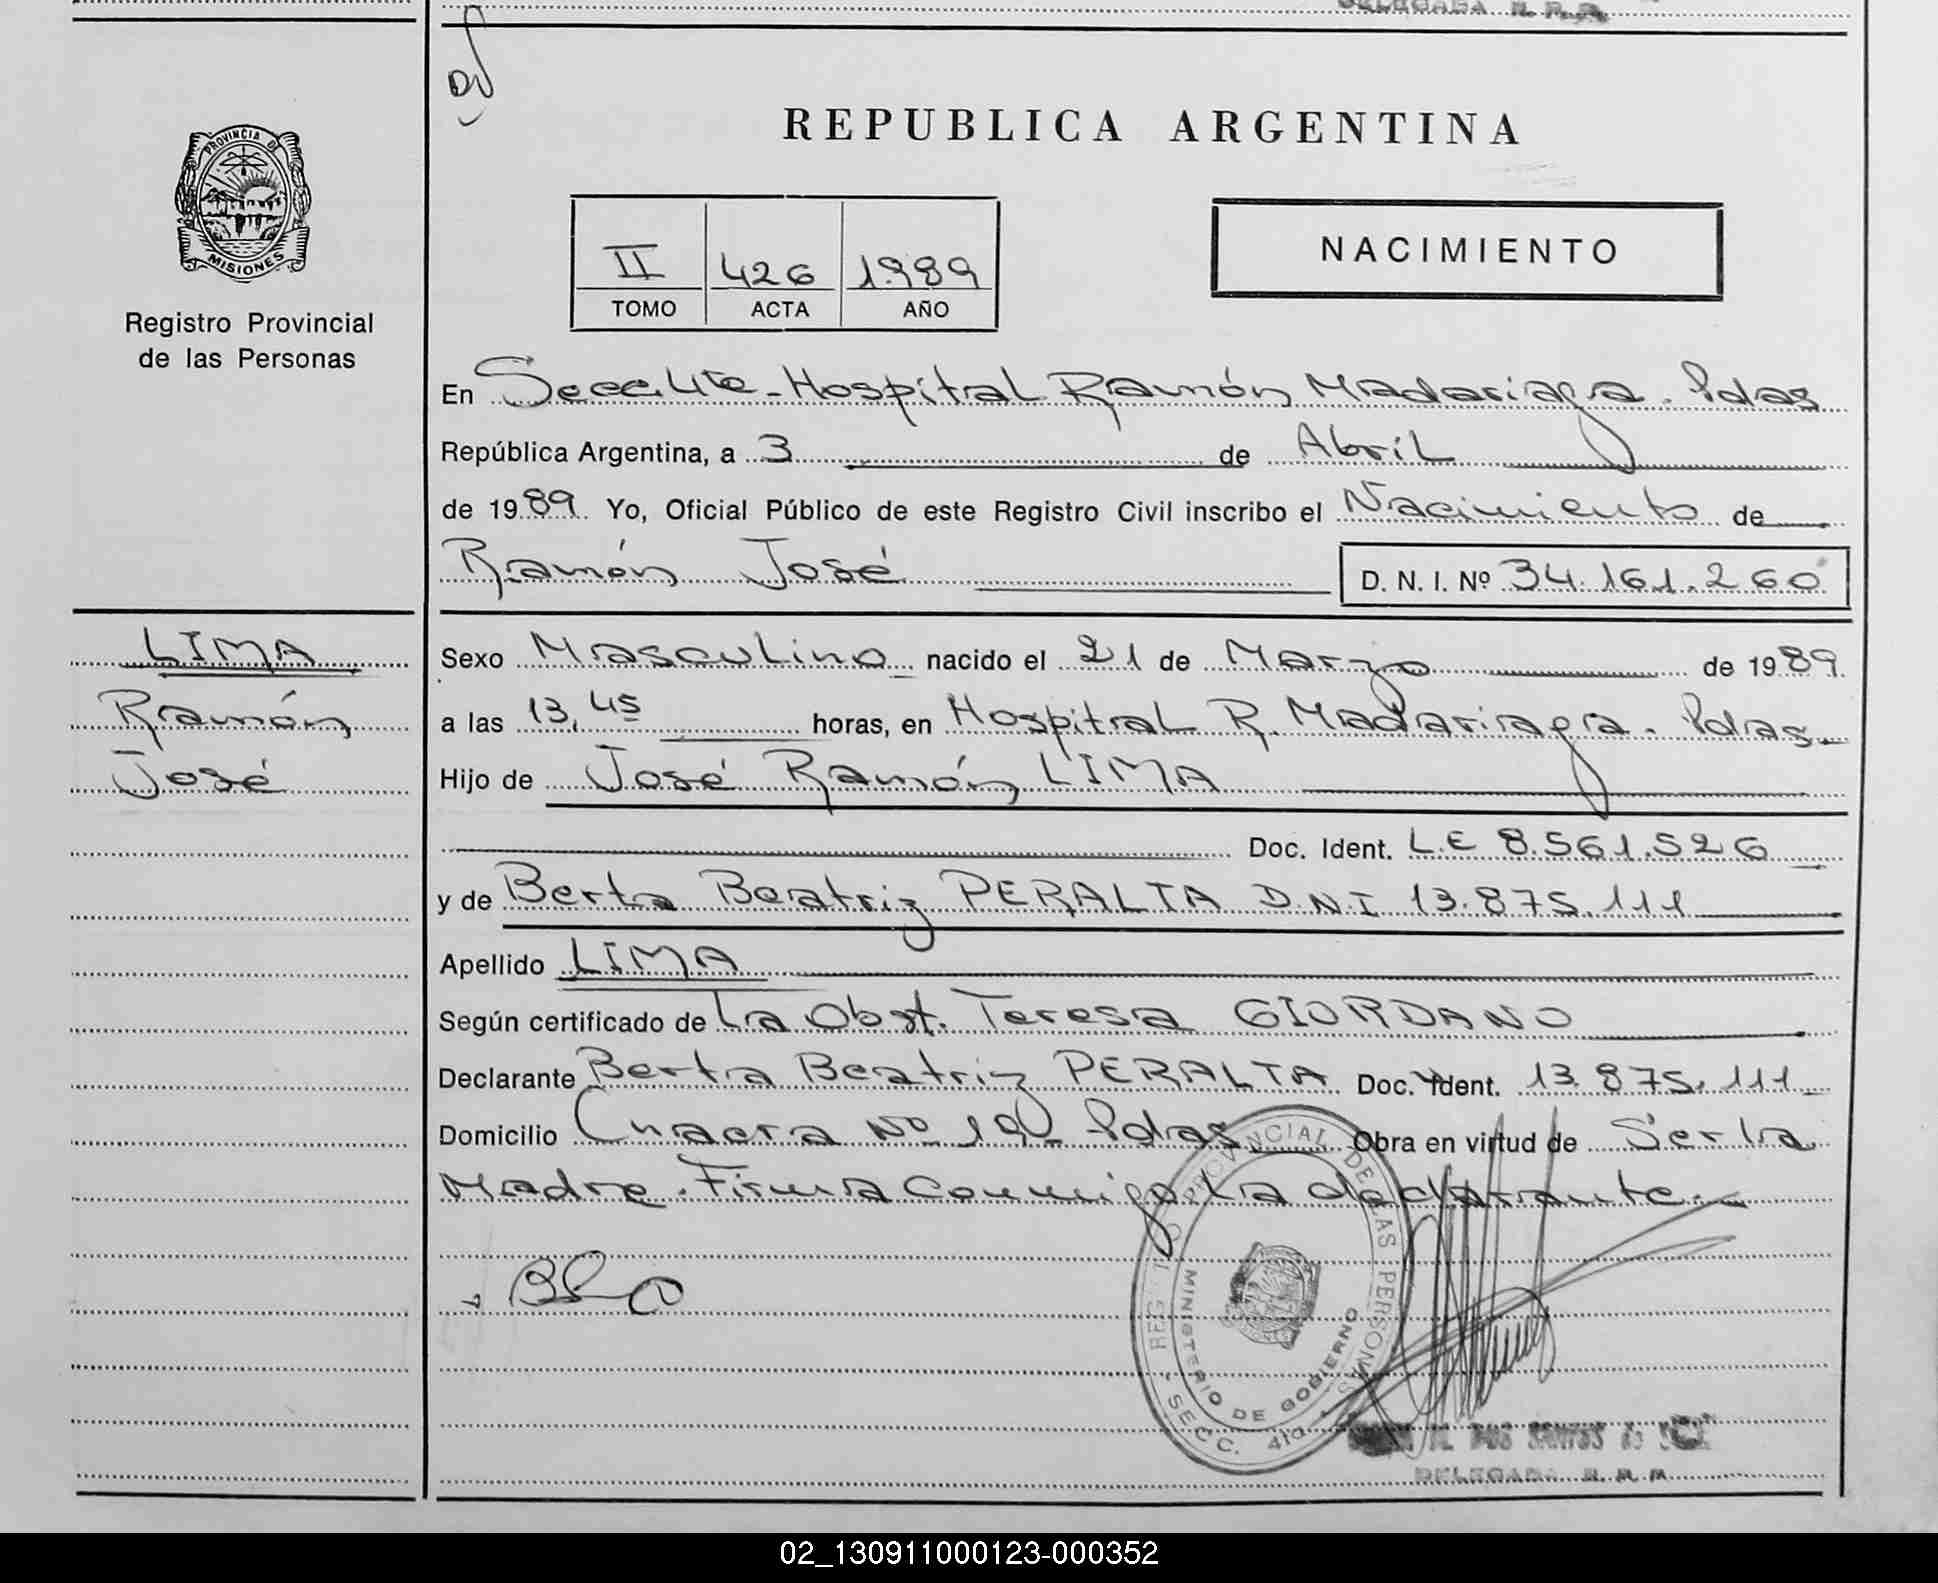 DELEGADA R. P. P.
PROVINCIA DE
MISIONES
Registro Provincial
de las Personas
REPUBLICA ARGENTINA
II 426 1.989
TOMO ACTA AÑO
NACIMIENTO
En Secc. 4ta - Hospital Ramón Madariaga. Pdas
República Argentina, a 3 de Abril
de 1989. Yo, Oficial Público de este Registro Civil inscribo el Nacimiento de
Ramón José D. N. I. Nº 34.161.260
LIMA
Ramón
José
Sexo Masculino nacido el 21 de Marzo de 1989.
a las 13,45 horas, en Hospital R. Madariaga. Pdas.
Hijo de José Ramón LIMA
Doc. Ident. L.E 8.561.526
y de Berta Beatriz PERALTA D.N.I 13.875.111
Apellido LIMA
Según certificado de La Obst. Teresa GIORDANO
Declarante Berta Beatriz PERALTA Doc. Ident. 13.875.111
Domicilio Chacra Nº 192 Pdas Obra en virtud de Ser la
Madre. Firma Conmigo La declarante.
REGISTRO PROVINCIAL DE LAS PERSONAS
MINISTERIO DE GOBIERNO
SECC. 4ta
M. DOS SANTOS de
DELEGADA R. P. P.
02_130911000123-000352